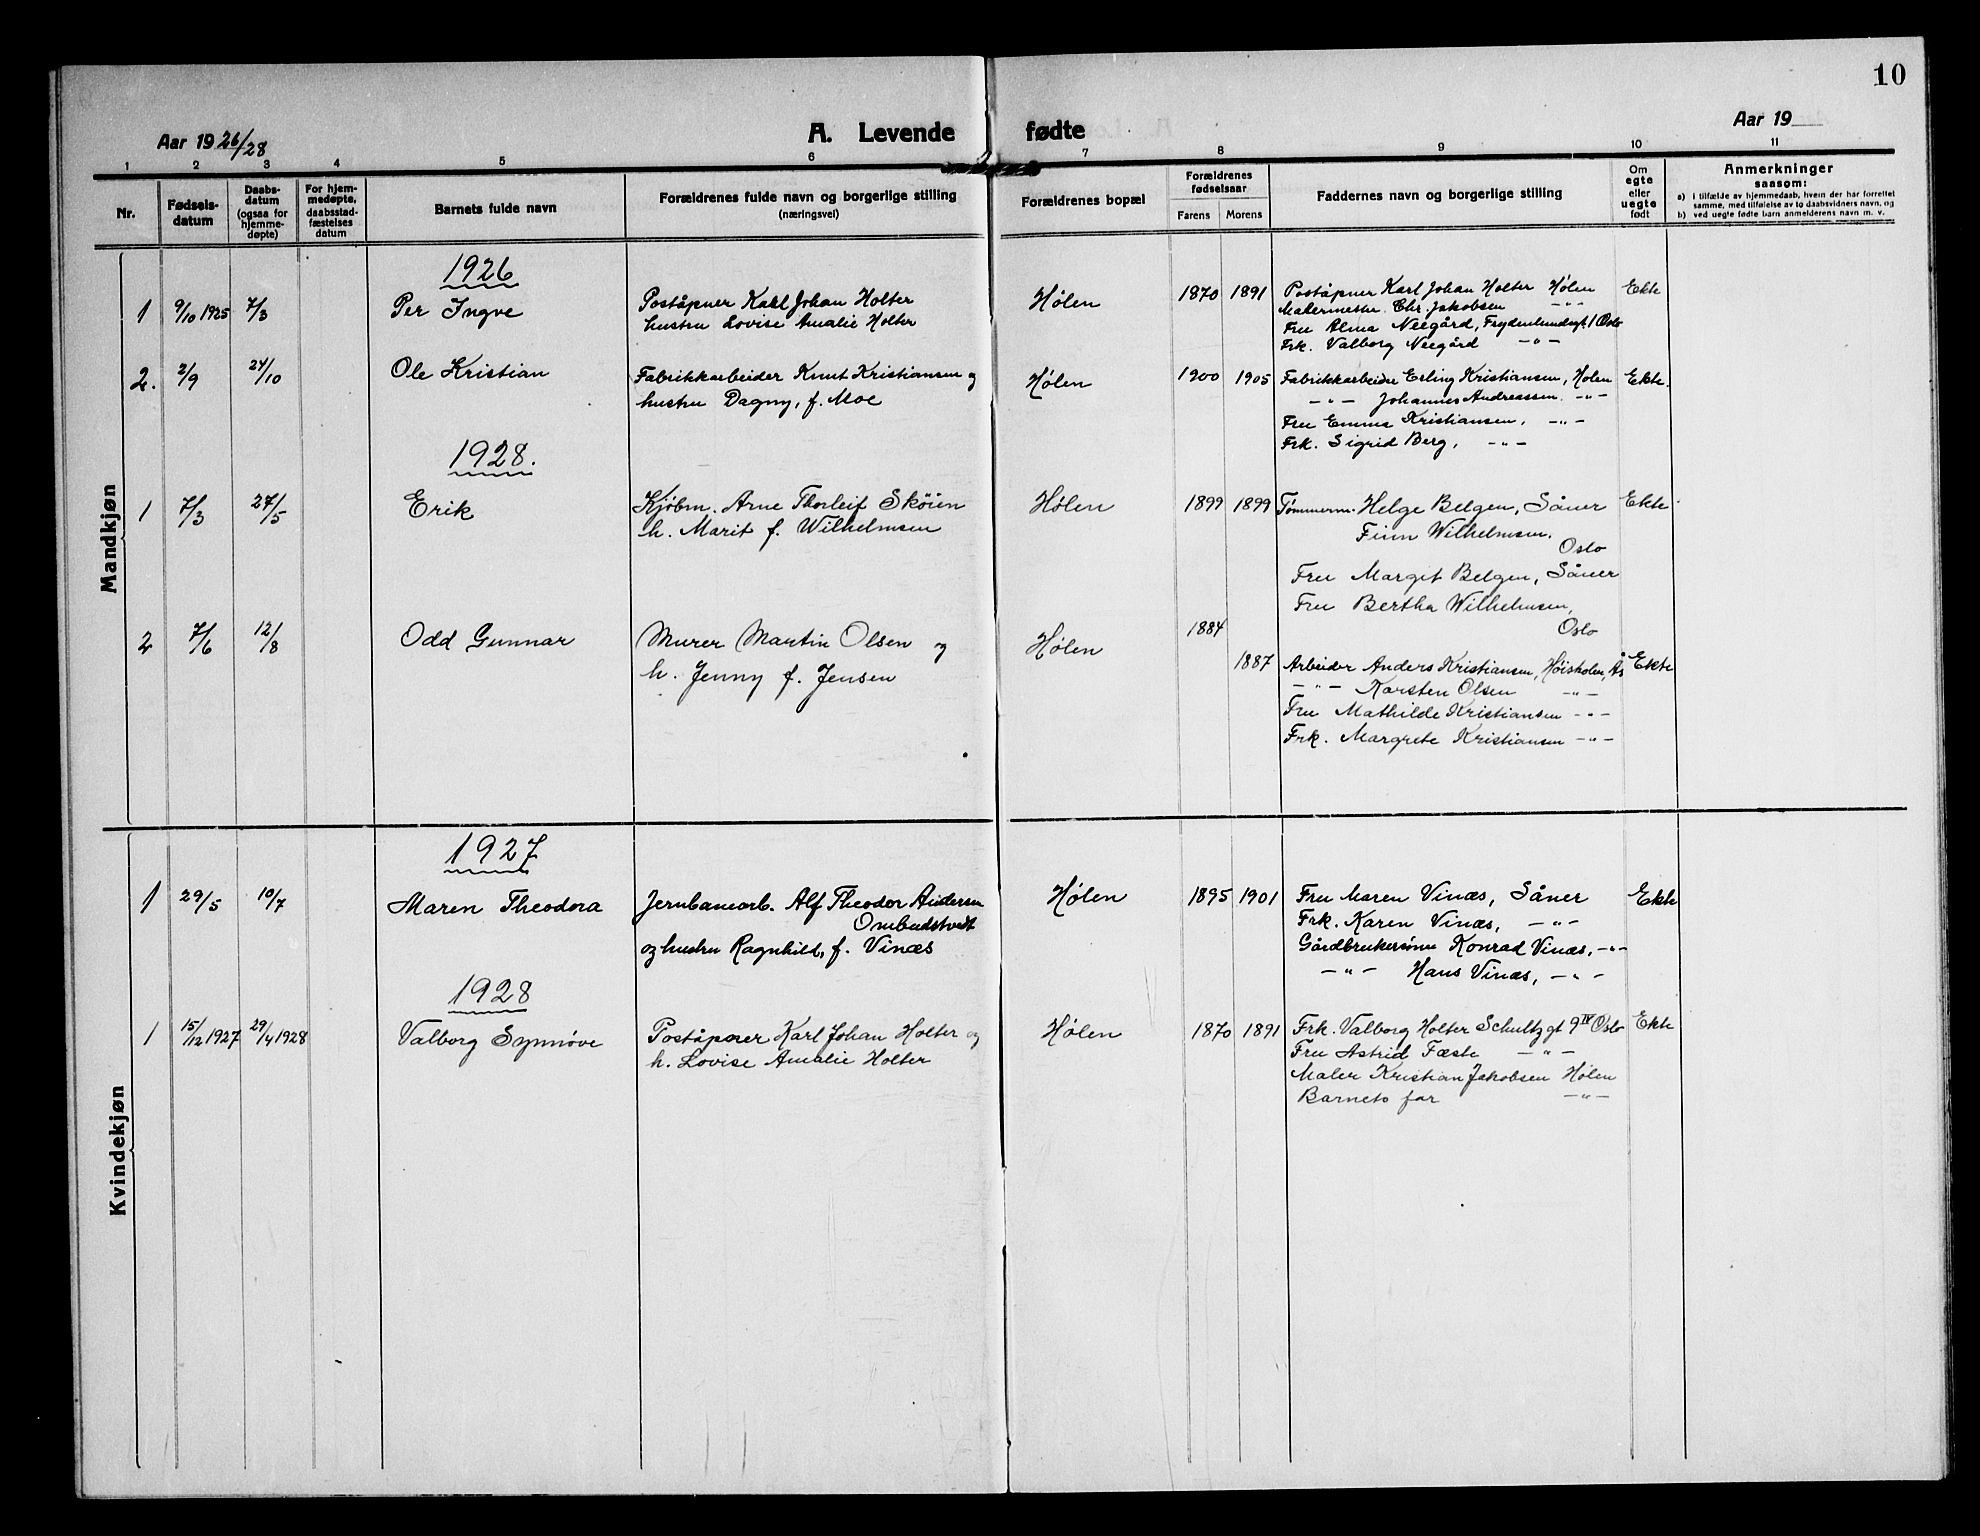 10
Aar 1926/28
A. Levende fødte
Aar 19
1 2 3 4 5 6 7 8 9 10 11
Nr.
Fødsels-
datum
Daabs-
datum
(ogsaa for
hjemme-
døpte)
For hjem-
medøpte,
daabsstad-
fæstelses
datum
Barnets fulde navn
Forældrenes fulde navn og borgerlige stilling
(næringsvei)
Forældrenes bopæl
Forældrenes
fødselsaar
Farens Morens
Faddernes navn og borgerlige stilling
Om
egte
eller
uegte
født
Anmerkninger
saasom:
a) i tilfælde av hjemmedaab, hvem der har forrettet
samme, med tilføielse av to daabsvidners navn, og
b) ved uegte fødte barn anmelderens navn m. v.
Mandkjøn
1926
1 9/10 1925 7/3 Per Ingve
Poståpner Karl Johan Holter
hustru Lovise Amalie Holter
Hølen 1870 1891
Poståpner Karl Johan Holter Hølen
Malermester Chr. Jakobsen -"-
Fru Alma Neegård, Frydenlundsgt. 1 Oslo
Frk. Valborg Neegård -"-
Ekte
2. 2/9 24/10 Ole Kristian
Fabrikkarbeider Knut Kristiansen og
hustru Dagny, f. Moe
Hølen 1900 1905
Fabrikkarbeider Erling Kristiansen, Hølen
-"- Johannes Andreassen. -"-
Fru Emma Kristiansen, -"-
Frk. Sigrid Berg, -"-
Ekte.
1928.
1 7/3 27/5 Erik
Kjøbm. Arne Thorleif Skören
h. Marit f. Wilhelmsen
Hølen 1899 1899
Tømmerm. Helge Belgen, Såner
Finn Wilhelmsen,
Oslo
Fru Margit Belgen, Såner
Fru Bertha Wilhelmsen,
Oslo
Ekte
2 7/6 12/8 Odd Gunnar
Murer Martin Olsen og
h. Jenny f. Jensen
Hølen 1884
1887
Arbeider Anders Kristiansen, Høiskolen, Ås
-"- Karsten Olsen -"-
Fru Mathilde Kristiansen -"-
Frk. Margrete Kristiansen -"-
Ekte
Kvindekjøn
1927
1 29/5 10/7 Maren Theodora
Jernbanearb. Alf Theodor Andersen
Ombudstvedt
og hustru Ragnhild, f. Vinæs
Hølen 1895 1901
Fru Maren Vinæs, Såner
Frk. Karen Vinæs, -"-
Gårdbrukersønn Konrad Vinæs, -"-
-"- Hans Vinæs, -"-
Ekte
1928
1 15/12 1927 29/4 1928 Valborg Synnöve
Poståpner Karl Johan Holter og
h. Lovise Amalie Holter
Hølen 1870 1891
Frk. Valborg Holter Schultzgt 9 IV Oslo
Fru Astrid Fæste -"-
Maler Kristian Jakobsen Hølen
Barnets far -"-
Ekte